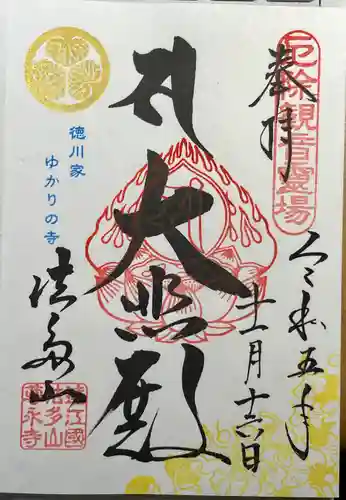 奉拝
厄除観音霊場
令和五年
十二月十六日
大悲殿
徳川家
ゆかりの寺
法多山
遠江國
法多山
尊永寺